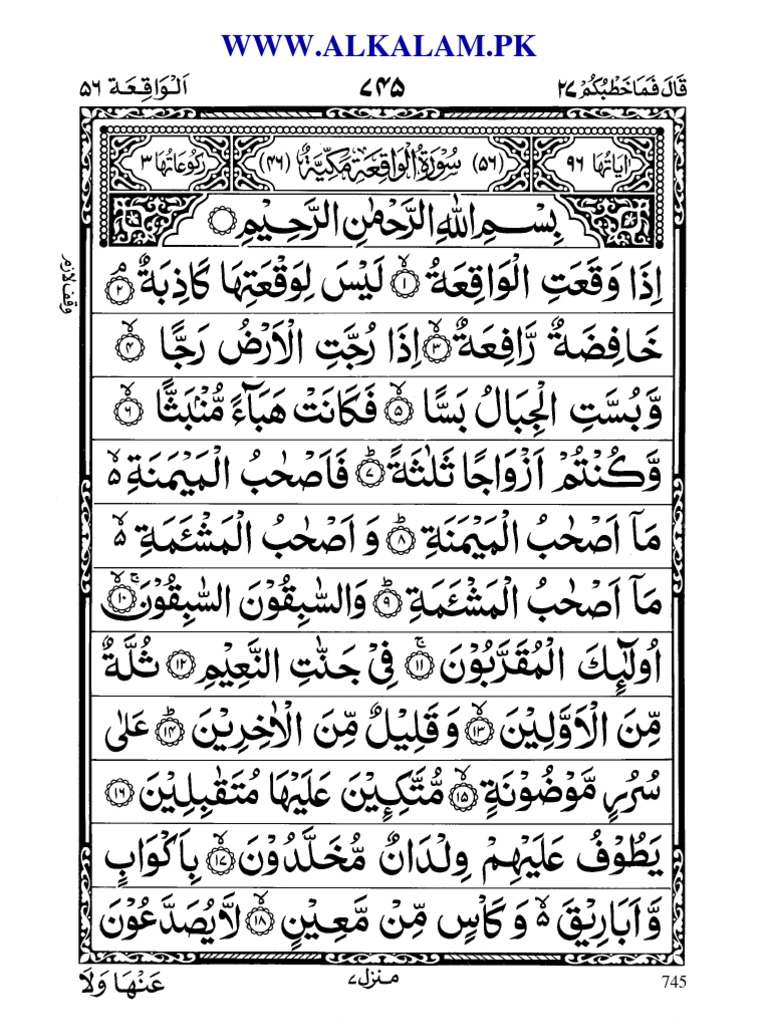 WWW.ALKALAM.PK
قَالَ فَمَا خَطْبُكُمْ ٢٧ ۷۴۵ اَلْوَاقِعَة ۵۶
اٰيَاتُهَا ٩٦ (۵۶) سُوْرَةُ الْوَاقِعَةِ مَكِّيَّةٌ (۴۶) رُكُوْعَاتُهَا ٣
بِسْمِ اللّٰهِ الرَّحْمٰنِ الرَّحِيْمِ
اِذَا وَقَعَتِ الْوَاقِعَةُ ۙ﴿۱﴾ لَيْسَ لِوَقْعَتِهَا كَاذِبَةٌ ۘ﴿۲﴾
وقف لازم
خَافِضَةٌ رَّافِعَةٌ ۙ﴿۳﴾ اِذَا رُجَّتِ الْاَرْضُ رَجًّا ۙ﴿۴﴾
وَّبُسَّتِ الْجِبَالُ بَسًّا ۙ﴿۵﴾ فَكَانَتْ هَبَآءً مُّنْۢبَثًّا ۙ﴿۶﴾
وَّكُنْتُمْ اَزْوَاجًا ثَلٰثَةً ؕ﴿۷﴾ فَاَصْحٰبُ الْمَيْمَنَةِ ۵ۙ
مَاۤ اَصْحٰبُ الْمَيْمَنَةِ ؕ﴿۸﴾ وَ اَصْحٰبُ الْمَشْـَٔمَةِ ۵ۙ
مَاۤ اَصْحٰبُ الْمَشْـَٔمَةِ ؕ﴿۹﴾ وَالسّٰبِقُوْنَ السّٰبِقُوْنَ ۚۙ﴿۱۰﴾
اُولٰٓئِكَ الْمُقَرَّبُوْنَ ۚ﴿۱۱﴾ فِيْ جَنّٰتِ النَّعِيْمِ ﴿۱۲﴾ ثُلَّةٌ
مِّنَ الْاَوَّلِيْنَ ۙ﴿۱۳﴾ وَ قَلِيْلٌ مِّنَ الْاٰخِرِيْنَ ؕ﴿۱۴﴾ عَلٰى
سُرُرٍ مَّوْضُوْنَةٍ ۙ﴿۱۵﴾ مُّتَّكِـِٕيْنَ عَلَيْهَا مُتَقٰبِلِيْنَ ﴿۱۶﴾
يَطُوْفُ عَلَيْهِمْ وِلْدَانٌ مُّخَلَّدُوْنَ ۙ﴿۱۷﴾ بِاَكْوَابٍ
وَّ اَبَارِيْقَ ۵ۙ وَ كَاْسٍ مِّنْ مَّعِيْنٍ ۙ﴿۱۸﴾ لَّا يُصَدَّعُوْنَ
عَنْهَا وَلَا منزل ۷ 745